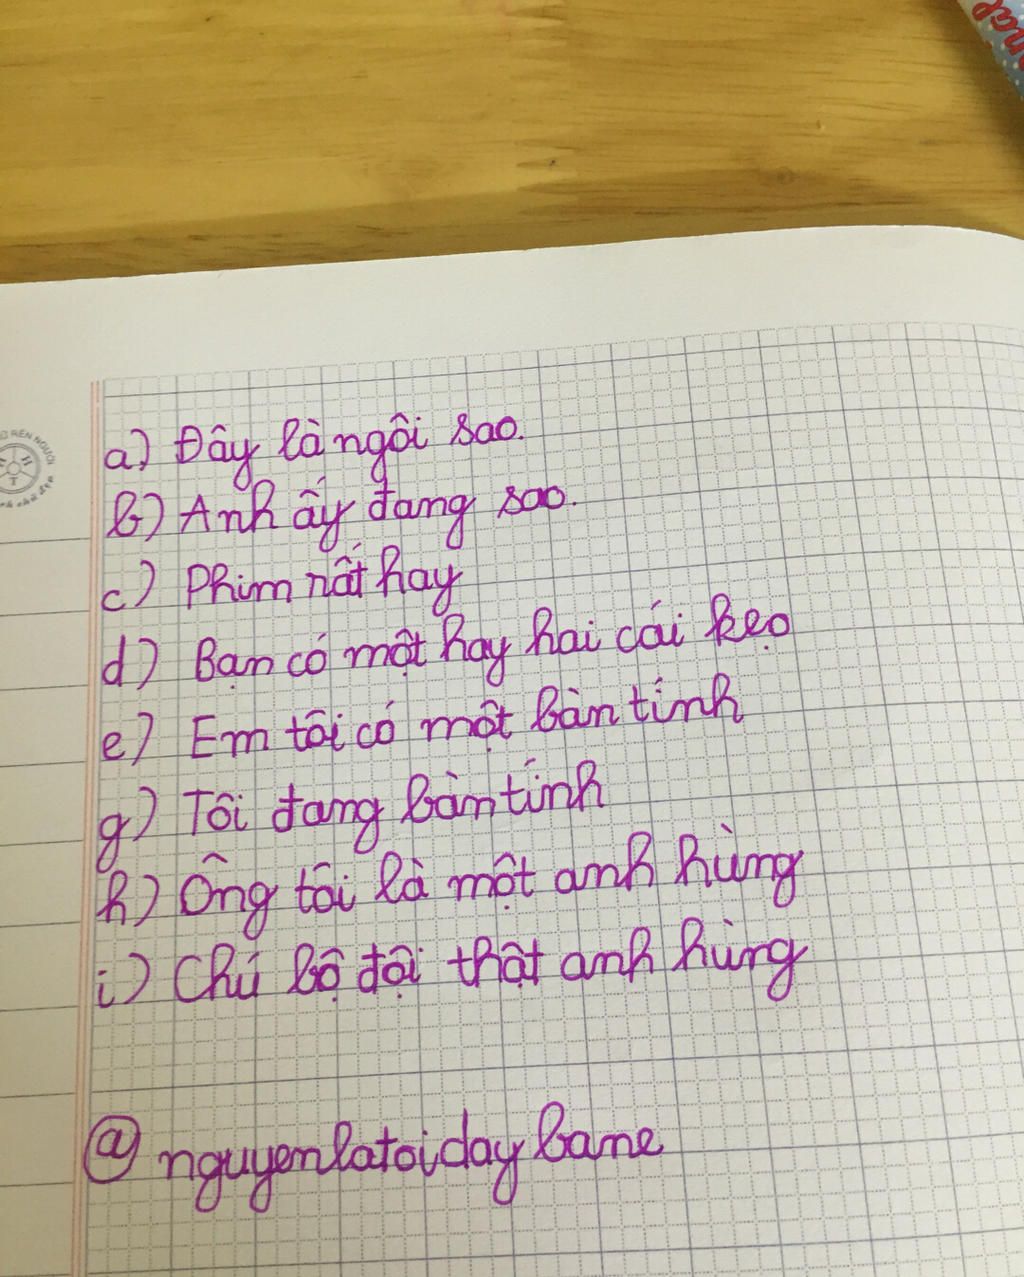 a) Đây là ngôi sao.
b) Anh ấy đang sao.
c) Phim rất hay
d) Bạn có một hay hai cái kẹo
e) Em tôi có một bàn tính
g) Tôi đang bàn tính
h) Ông tôi là một anh hùng
i) Chú bộ đội thật anh hùng
@nguyenlatoidaybane